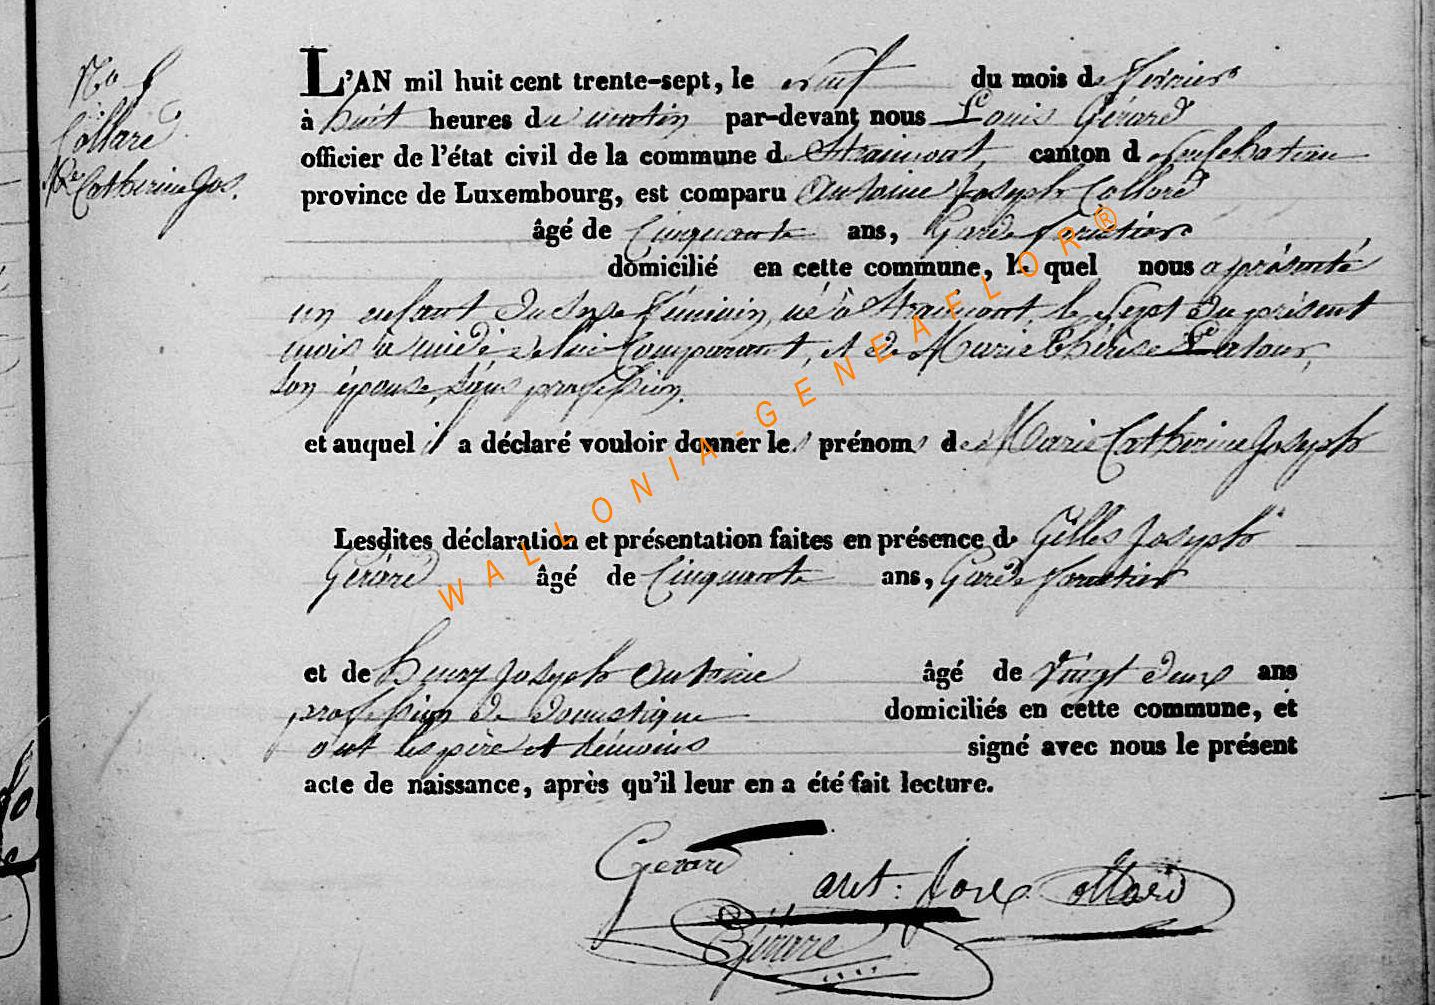 No 5
Collard
Mie Catherine Jos.
L'AN mil huit cent trente-sept, le neuf du mois de Février
à huit heures du matin par-devant nous Louis Gérard
officier de l'état civil de la commune de Straimont, canton d neufchateau
province de Luxembourg, est comparu Antoine Joseph Collard
âgé de Cinquante ans, Garde forestier
domicilié en cette commune, le quel nous a présenté
un enfant du sexe féminin, né à Straimont le Sept du présent
mois à midi de lui Comparant, et de Marie Thérèse Latour,
son épouse, sans profession.
et auquel il a déclaré vouloir donner les prénoms de Marie Catherine Joseph
Lesdites déclaration et présentation faites en présence de Gilles Joseph
Gérard âgé de Cinquante ans, Garde forestier
et de henry Joseph Antoine âgé de vingt deux ans
profession de domestique domiciliés en cette commune, et
ont les père et témoins signé avec nous le présent
acte de naissance, après qu'il leur en a été fait lecture.
Gerard
ant: Jos Collard
Gérard
WALLONIA-GENEAFLOR®